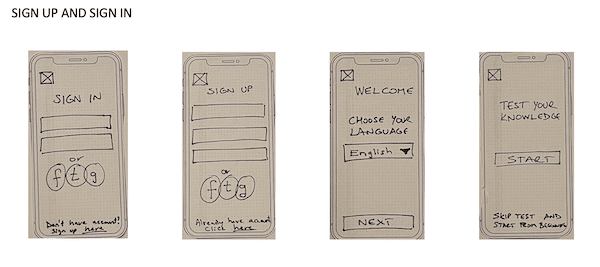 SIGN UP AND SIGN IN
SIGN IN
or
f t g
Don't have account?
Sign up here
SIGN UP
or
f t g
Already have account
Click here
WELCOME
CHOOSE YOUR
LANGUAGE
English
NEXT
TEST YOUR
KNOWLEDGE
START
SKIP TEST AND
START FROM BEGINNING